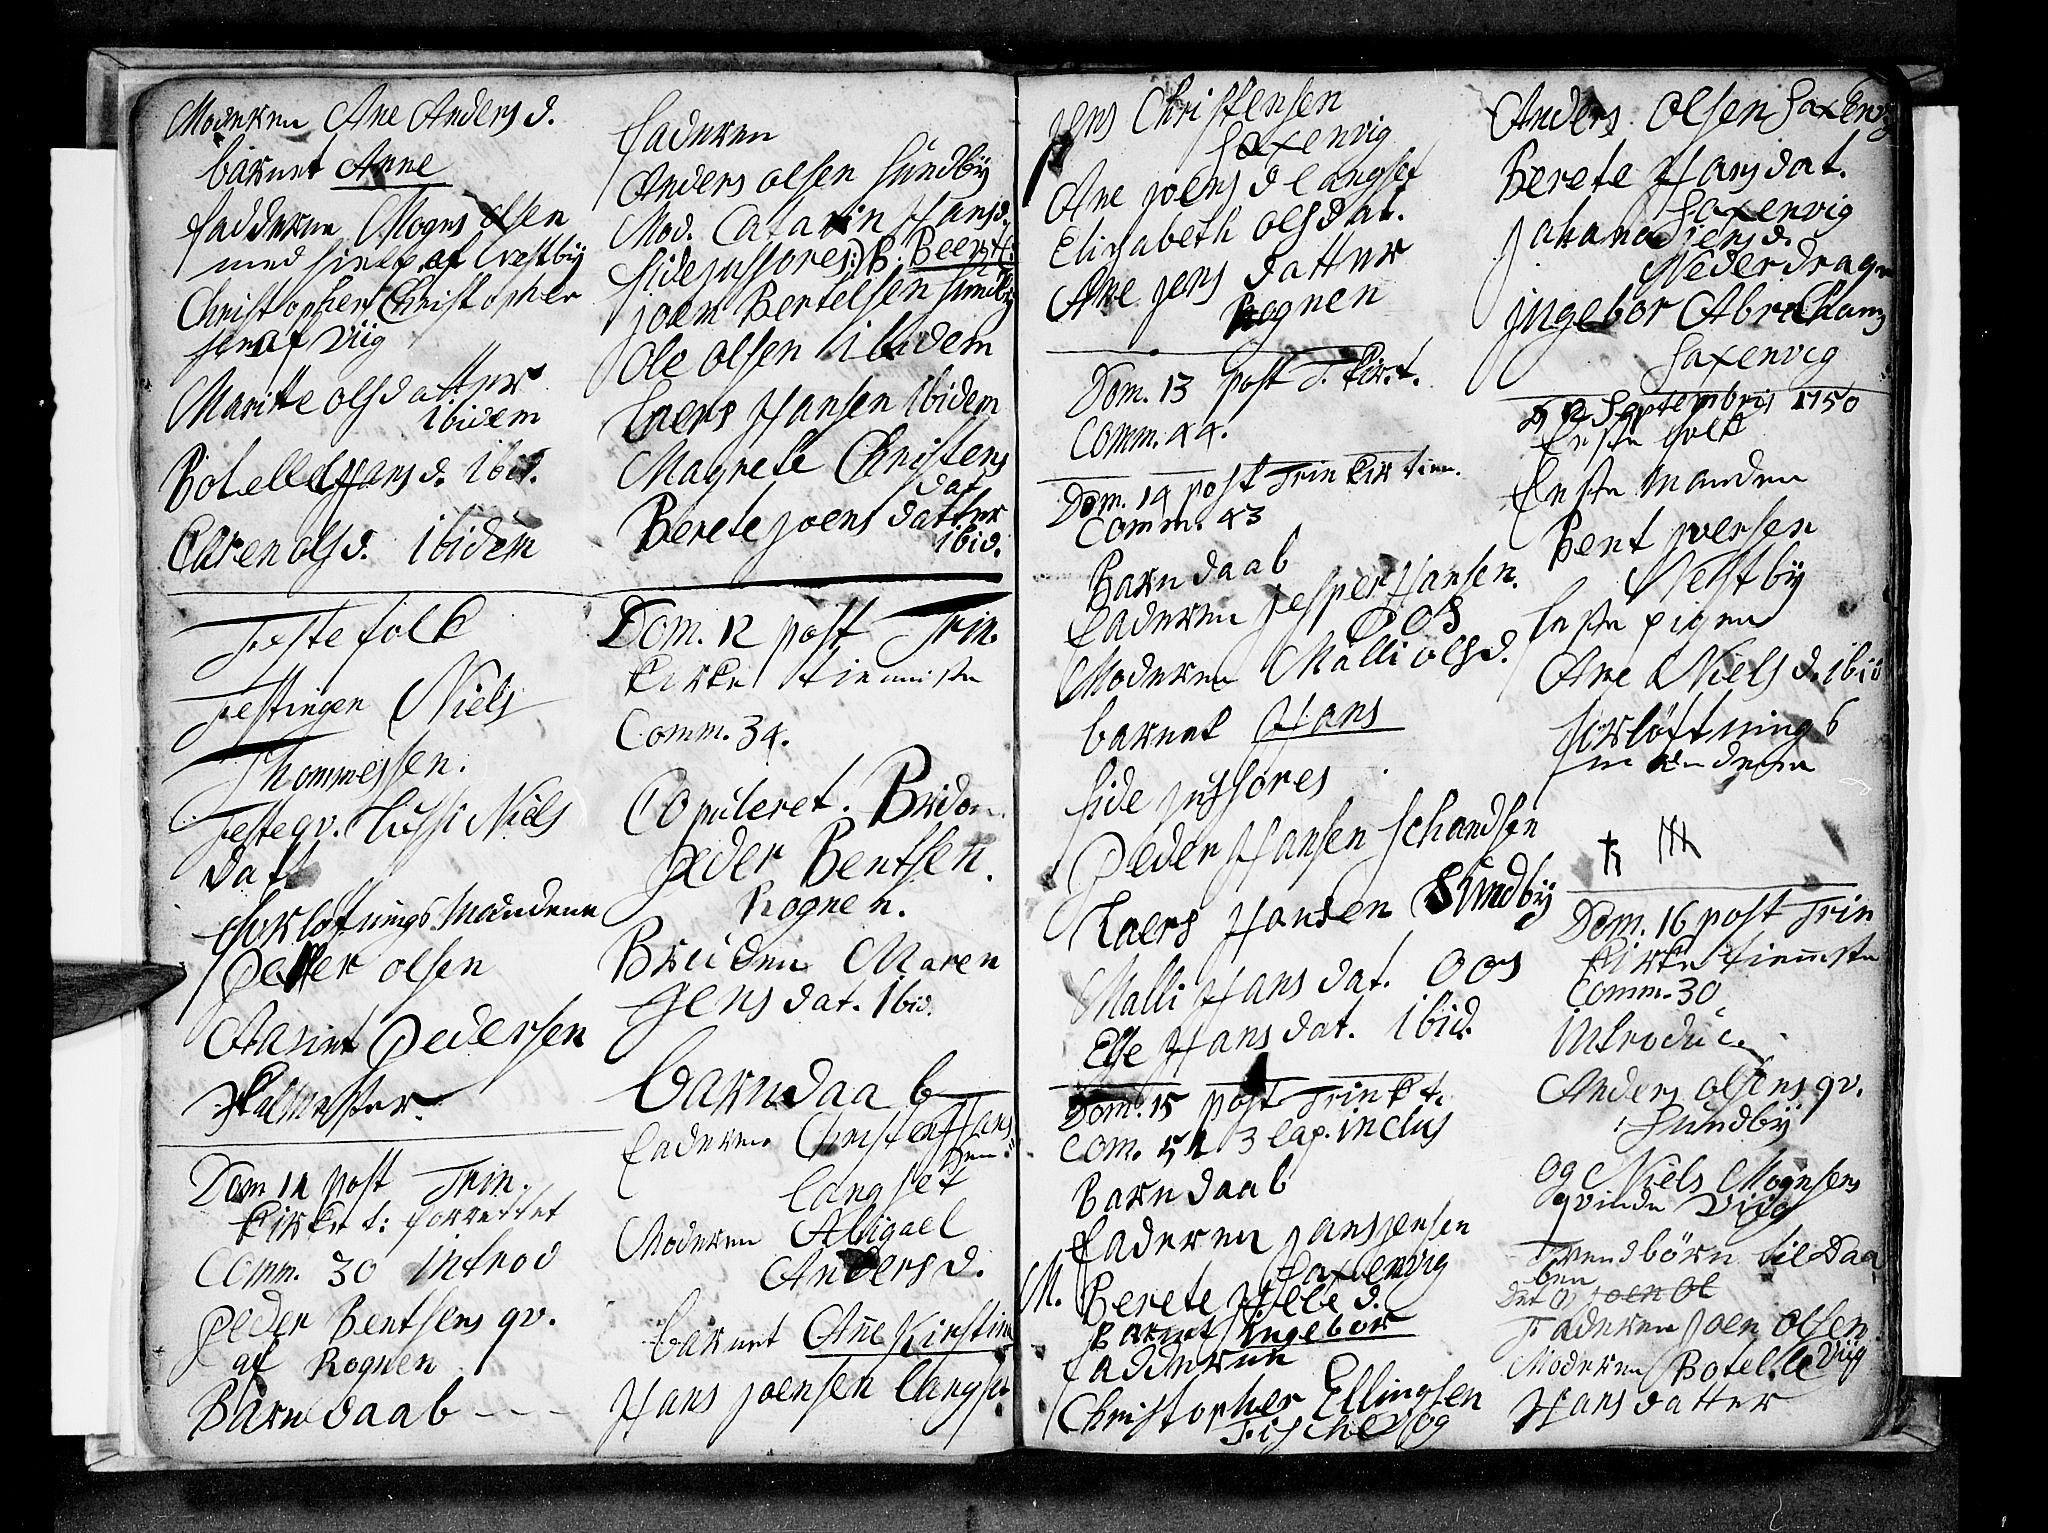 Moderen Ane Anders d.
barnet Anne
fadderne Mogns olsen
med hielp af Westbÿ
Christopher Christopher
sen af Viig
Maritte olsdatter
Ibidem
Botelle Hans d. Ibid.
Caren ols d. Ibidem
Festefolk
Festingen Niels
Thommessen.
Festeqv. Niels
datt
forlöftnings Mændene
Peder olsen
Pedersen
Dom 11 post Trin.
Kirke t: forrettet
Comm. 30 Introd
Peder Bentsens qv.
af Rognen
Barn daab - - -
faderen
Anders olsen Sundbÿ
Mod. Catarin Hansd.
fidejussores: B. Beerth:
joen Bertelsen Sundbÿ
Ole olsen Ibidem
Laers Hansen Ibidem
Magrete Christens
dat
Berete joens datter
ibid.
Dom. 12 post Trin.
Kirke tienniste
Comm. 34.
Copuleret. Brudom
Peder Bentsen.
Rognen.
Bruden Maren
Jens dat. Ibid.
barndaab
faderen Christen Hans
sen.
Langset
Moderen Abigael
Anders d.
barnet Añe Kirstine
Hans joensen Langset
jens Christensen
Saxenvig
Ane joens d Langset
Elizabeth olsdat.
Ane jens datter
Rognen
Dom. 13 post T. Kirk t.
Comm. 44.
Dom. 14 post Trin Kirk tien.
Comm. 43
Barn daab
faderen jesper Hansen.
Oos
Moderen Malli ols d.
barnet Hans
fide jussores
Peder Hansen Schandsen
Laers Hansen Sundbÿ
Malli Hans dat. Oos
Else Hans dat. Ibid.
Dom. 15 post Trin K t.
Com. 51 3 Lap. inclus
Barn daab
faderen jens jensen
Saxenvig
M. Berete d.
Barnet Ingebor
fadderne
Christopher Ellingsen
Fischer og
Anders olsen Saxenvig
Berete Hans dat.
Saxenvig
johanna jens d.
Nederdragn
jngebor Abrahams
Saxenvig
d 12 Septembris 1750
feste folk
feste manden
Bent joersen
Westbÿ
feste pigen
Ane Niels d. ibid
forlöftnings
mændene
Dom. 16 post Trin
Kirke tienneste
Comm. 30
Introduc.
Anders olsens qv.
Sundbÿ
og Niels Mognsens
qvinde Viig
Trendbörn til Daa
ben
Det 1) joen ol
Faderen joen olsen
Viig
Moderen Botelle
Hans datter